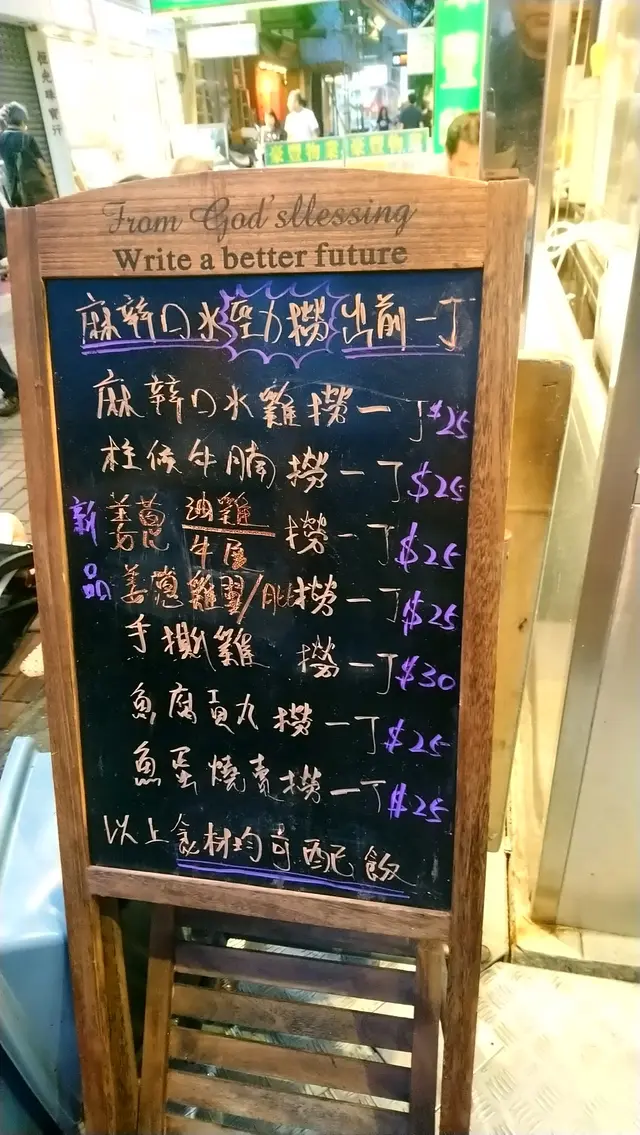 From God'sllessing
Write a better future
麻辣口水勁撈出前一丁
麻辣口水雞撈一丁 $25
柱侯牛腩撈一丁 $25
新品
姜蔥油雞牛展撈一丁 $25
姜蔥雞翼/肶撈一丁 $25
手撕雞撈一丁 $30
魚腐貢丸撈一丁 $25
魚蛋燒賣撈一丁 $25
以上食材均可配飯
豐物業